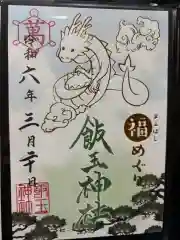 萬
福めぐり
まんぷく
飯玉神社
令和六年三月二十日
飯玉神社